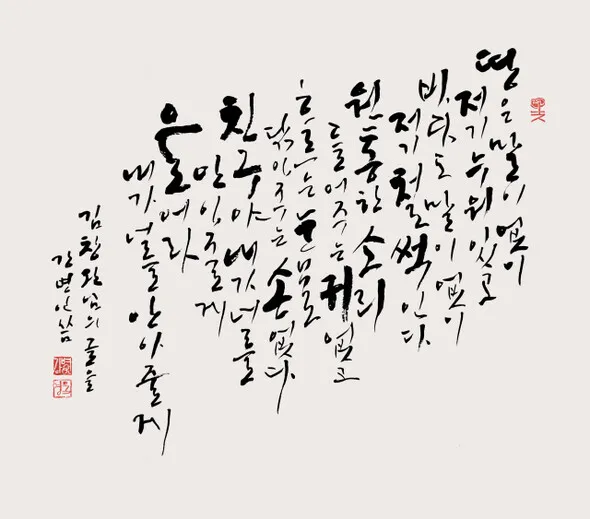 땅은 말이 없이
저기 누워있고
바다도 말이 없이
철썩인다
원통한 소리
들어주는 귀 없고
흐르는 눈물
닦아주는 손 없다
친구야 내가 너를
울어라
내가 너를 안아줄게
김창완님의 글을
강병인 씀